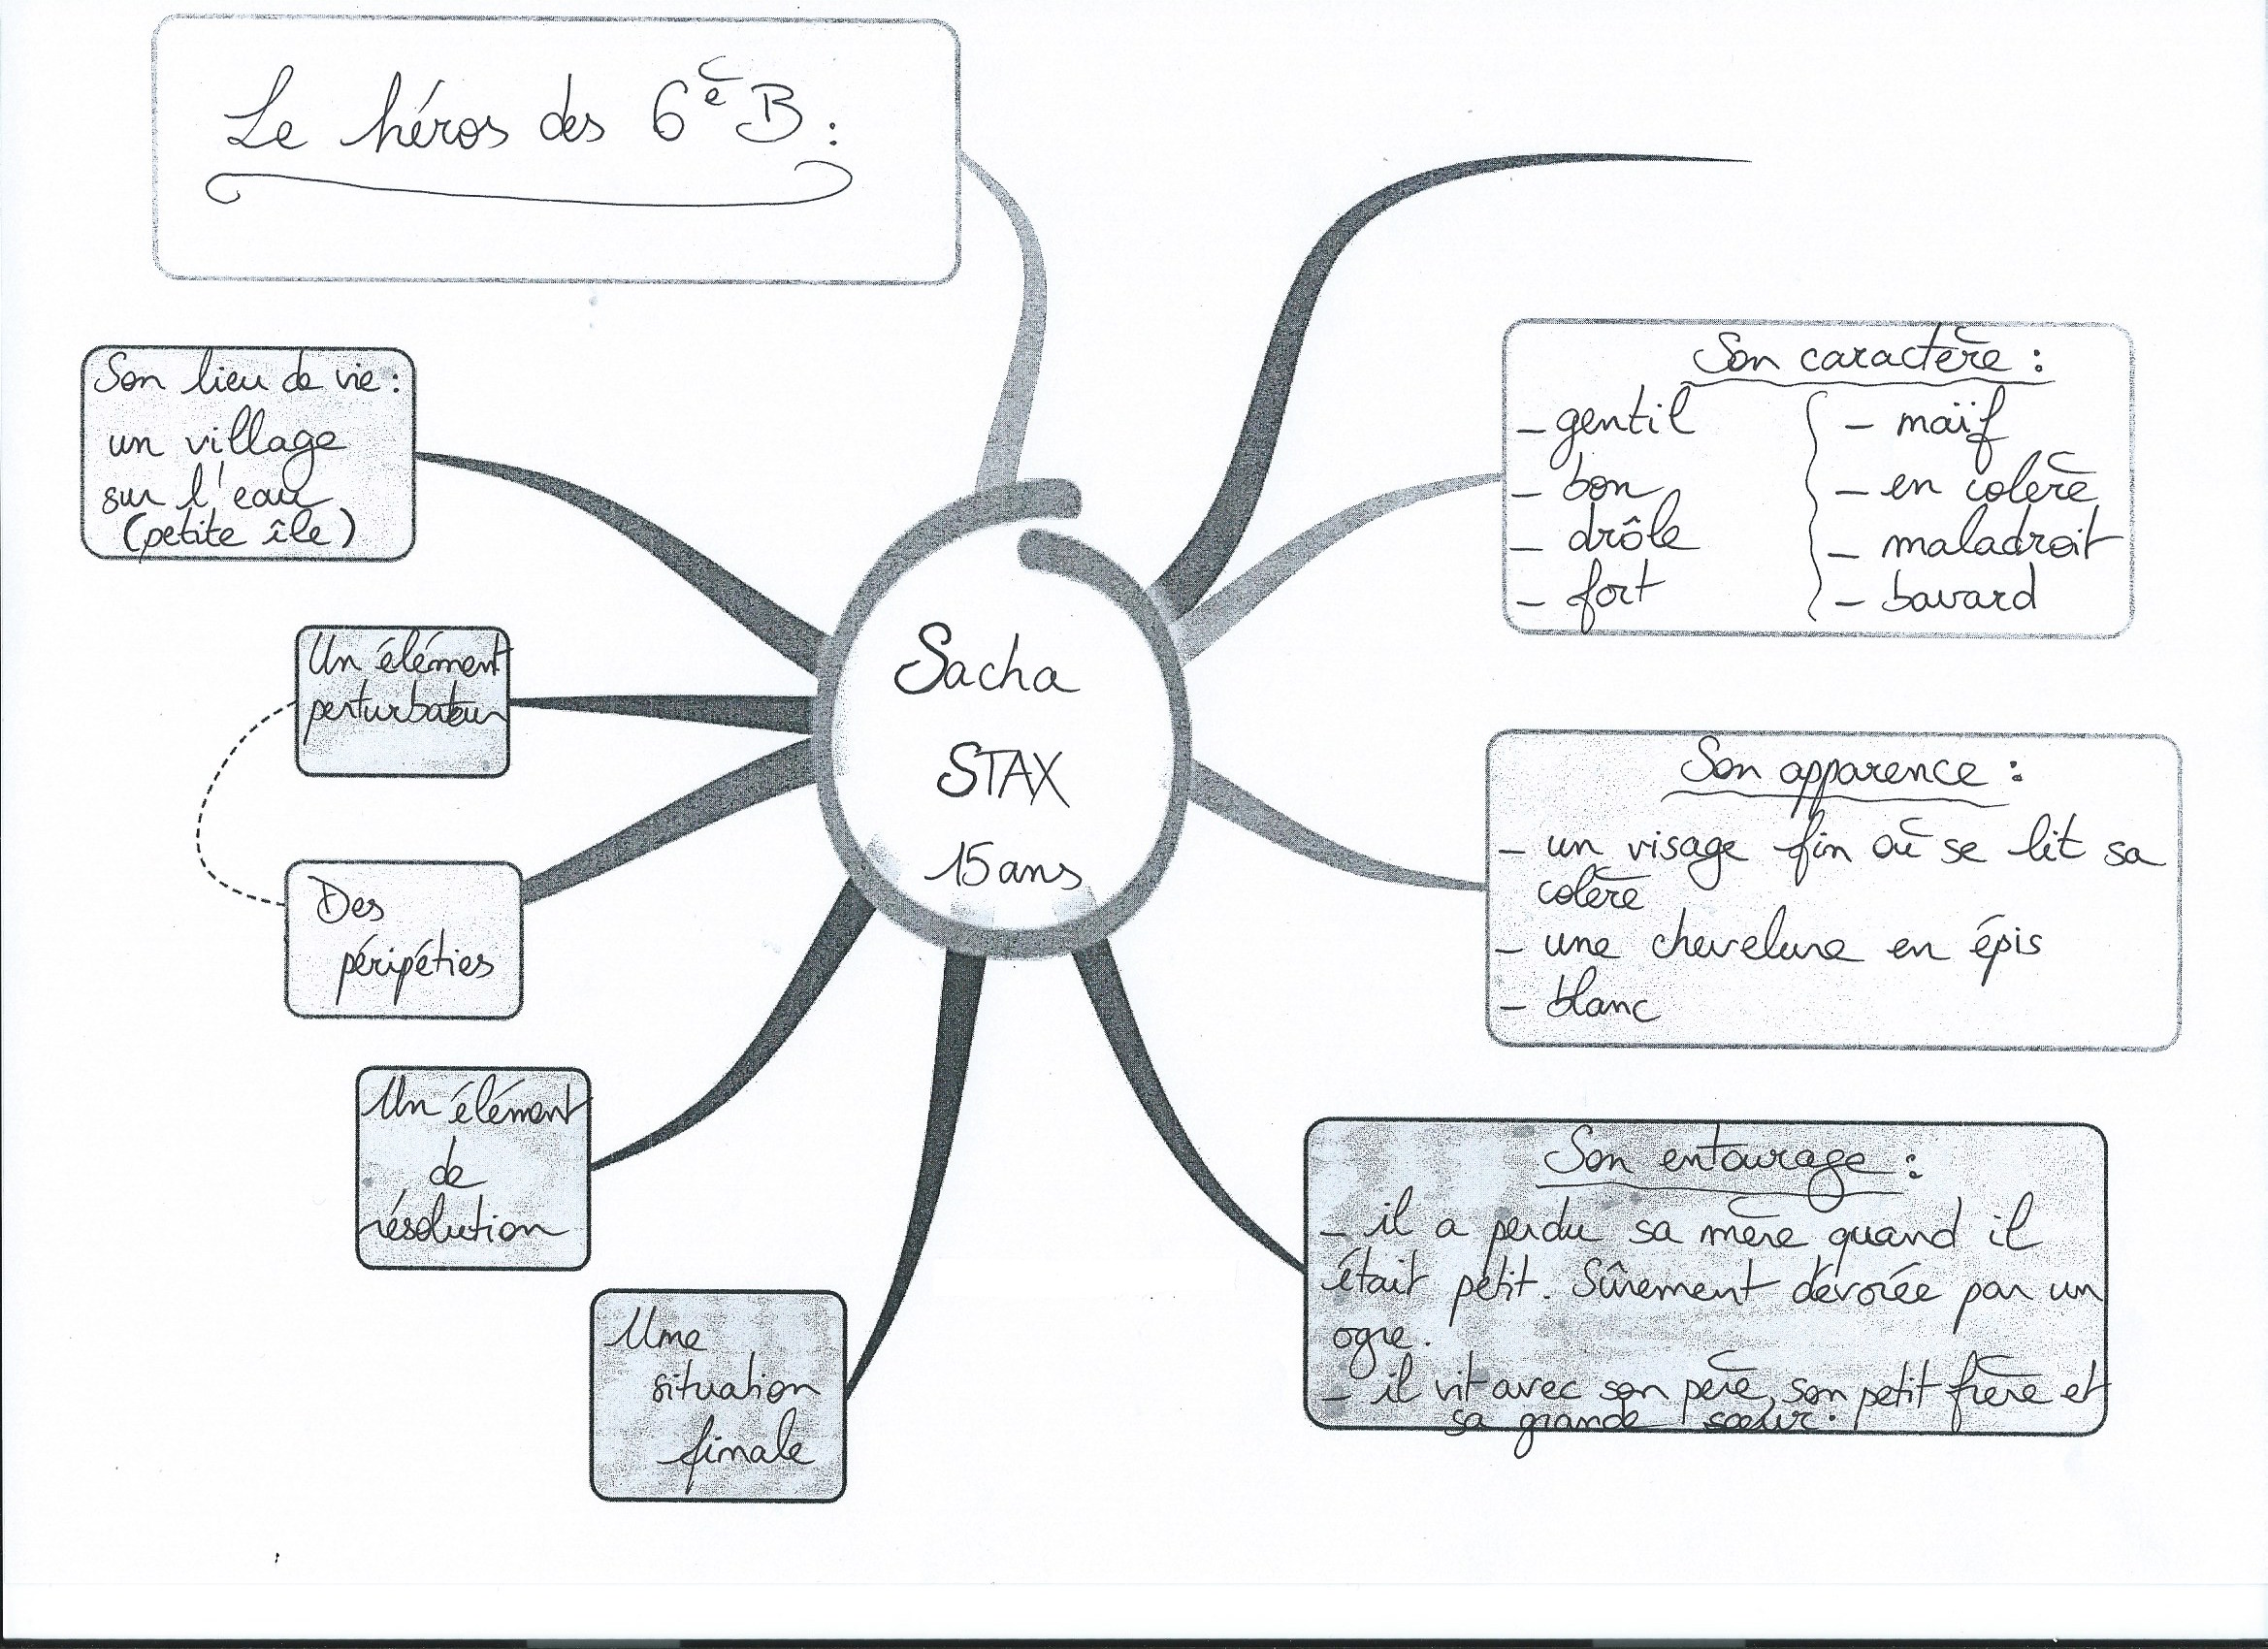 Le héros des 6è B :
Son lieu de vie :
un village
sur l'eau
(petite île)
Un élément
perturbateur
Des
péripéties
Un élément
de
résolution
Une
situation
finale
Sacha
STAX
15 ans
Son caractère :
- gentil
- bon
- drôle
- fort
- naïf
- en colère
- maladroit
- bavard
Son apparence :
- un visage fin où se lit sa
colère
- une chevelure en épis
- blanc
Son entourage :
- il a perdu sa mère quand il
était petit. Sûrement dévorée par un
ogre.
- il vit avec son père, son petit frère et
sa grande soeur.